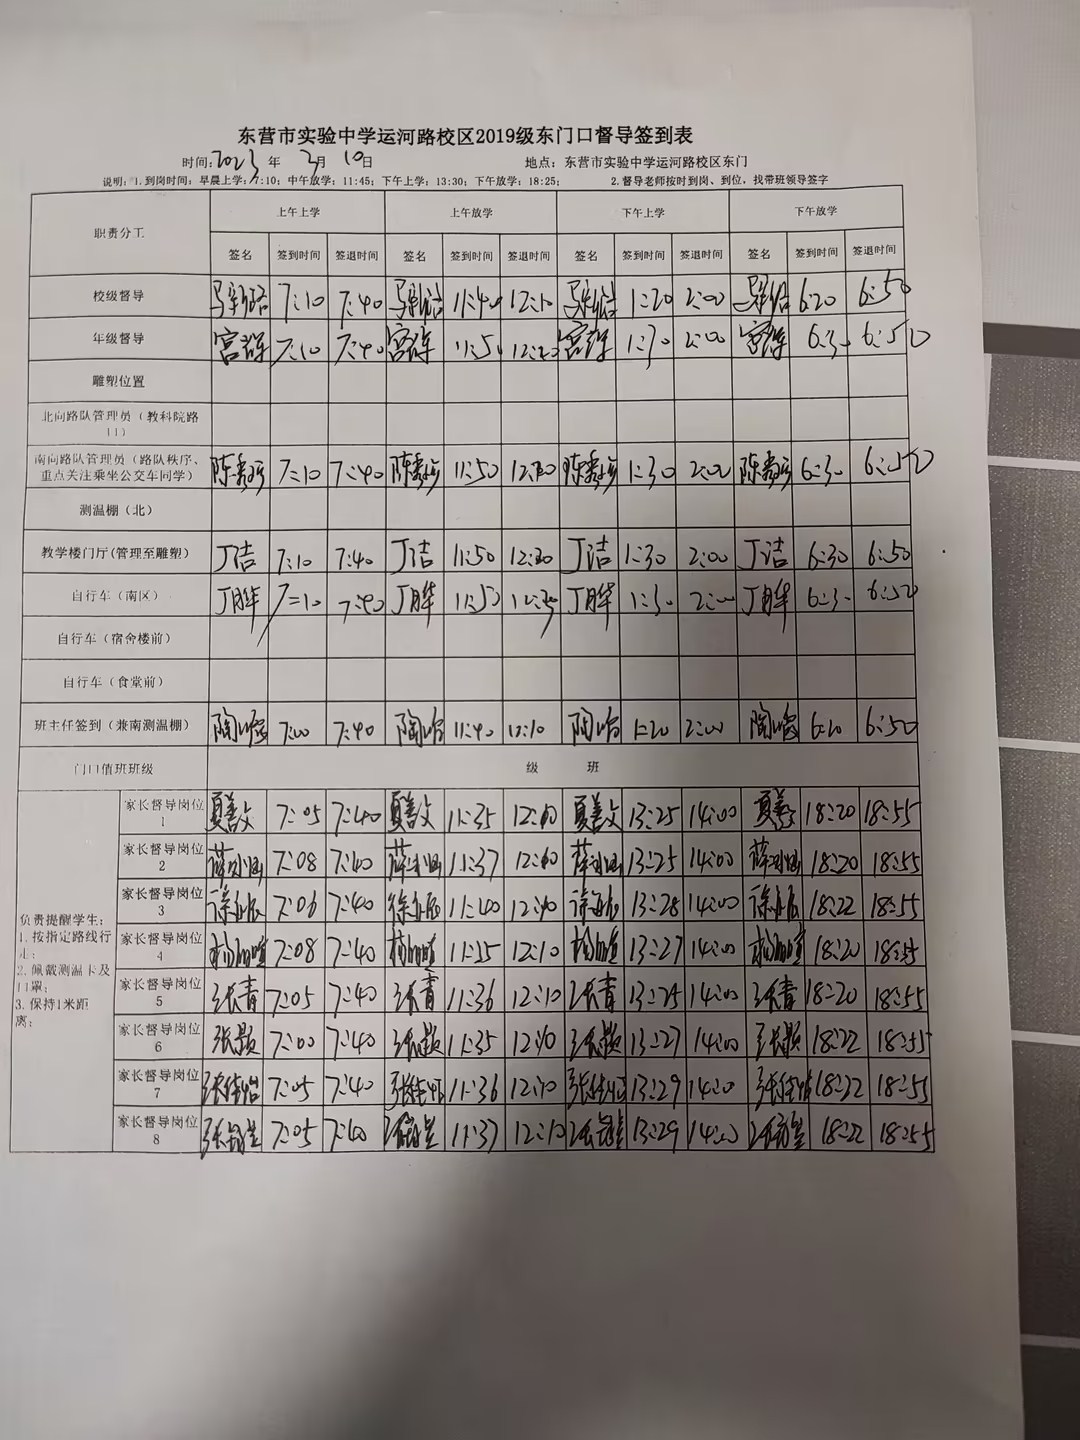 东营市实验中学运河路校区2019级东门口督导签到表
时间:2023年3月10日 地点：东营市实验中学运河路校区东门
说明：1.到岗时间：早晨上学：7:10；中午放学：11:45；下午上学：13:30；下午放学：18:25； 2.督导老师按时到岗、到位，找带班领导签字
职责分工 上午上学 上午放学 下午上学 下午放学
签名 签到时间 签退时间 签名 签到时间 签退时间 签名 签到时间 签退时间 签名 签到时间 签退时间
校级督导 7:10 7:40 11:40 12:10 1:20 2:00 6:20 6:50
年级督导 7:10 7:40 11:50 12:20 1:30 2:00 6:30 6:50
雕塑位置
北向路队管理员（教科院路口）
南向路队管理员（路队秩序、重点关注乘坐公交车同学） 7:10 7:40 11:50 12:30 1:30 2:00 6:30 6:50
测温棚（北）
教学楼门厅(管理至雕塑) 丁洁 7:10 7:40 丁洁 11:50 12:30 丁洁 1:30 2:00 丁洁 6:30 6:50
自行车（南区） 7:10 7:40 11:50 12:30 1:30 2:00 6:30 6:50
自行车（宿舍楼前）
自行车（食堂前）
班主任签到（兼南测温棚） 7:00 7:40 11:40 12:10 1:20 2:00 6:20 6:50
门口值班班级 级 班
负责提醒学生：
1.按指定路线行走；
2.佩戴测温卡及口罩；
3.保持1米距离；
家长督导岗位1 夏善文 7:05 7:40 夏善文 11:35 12:10 夏善文 13:25 14:00 夏善文 18:20 18:55
家长督导岗位2 7:08 7:40 11:37 12:10 13:25 14:00 18:20 18:55
家长督导岗位3 7:06 7:40 11:40 12:10 13:28 14:00 18:22 18:55
家长督导岗位4 7:08 7:40 12:10 13:27 14:00 18:20 18:55
家长督导岗位5 张青 7:05 7:40 张青 11:36 12:10 张青 13:25 14:00 张青 18:20 18:55
家长督导岗位6 张颖 7:00 7:40 张颖 11:35 12:10 张颖 13:27 14:00 张颖 18:22 18:55
家长督导岗位7 张佳怡 7:05 7:40 张佳怡 11:36 12:10 张佳怡 13:29 14:00 张佳怡 18:22 18:55
家长督导岗位8 7:05 7:40 11:37 12:10 13:29 14:00 18:22 18:55